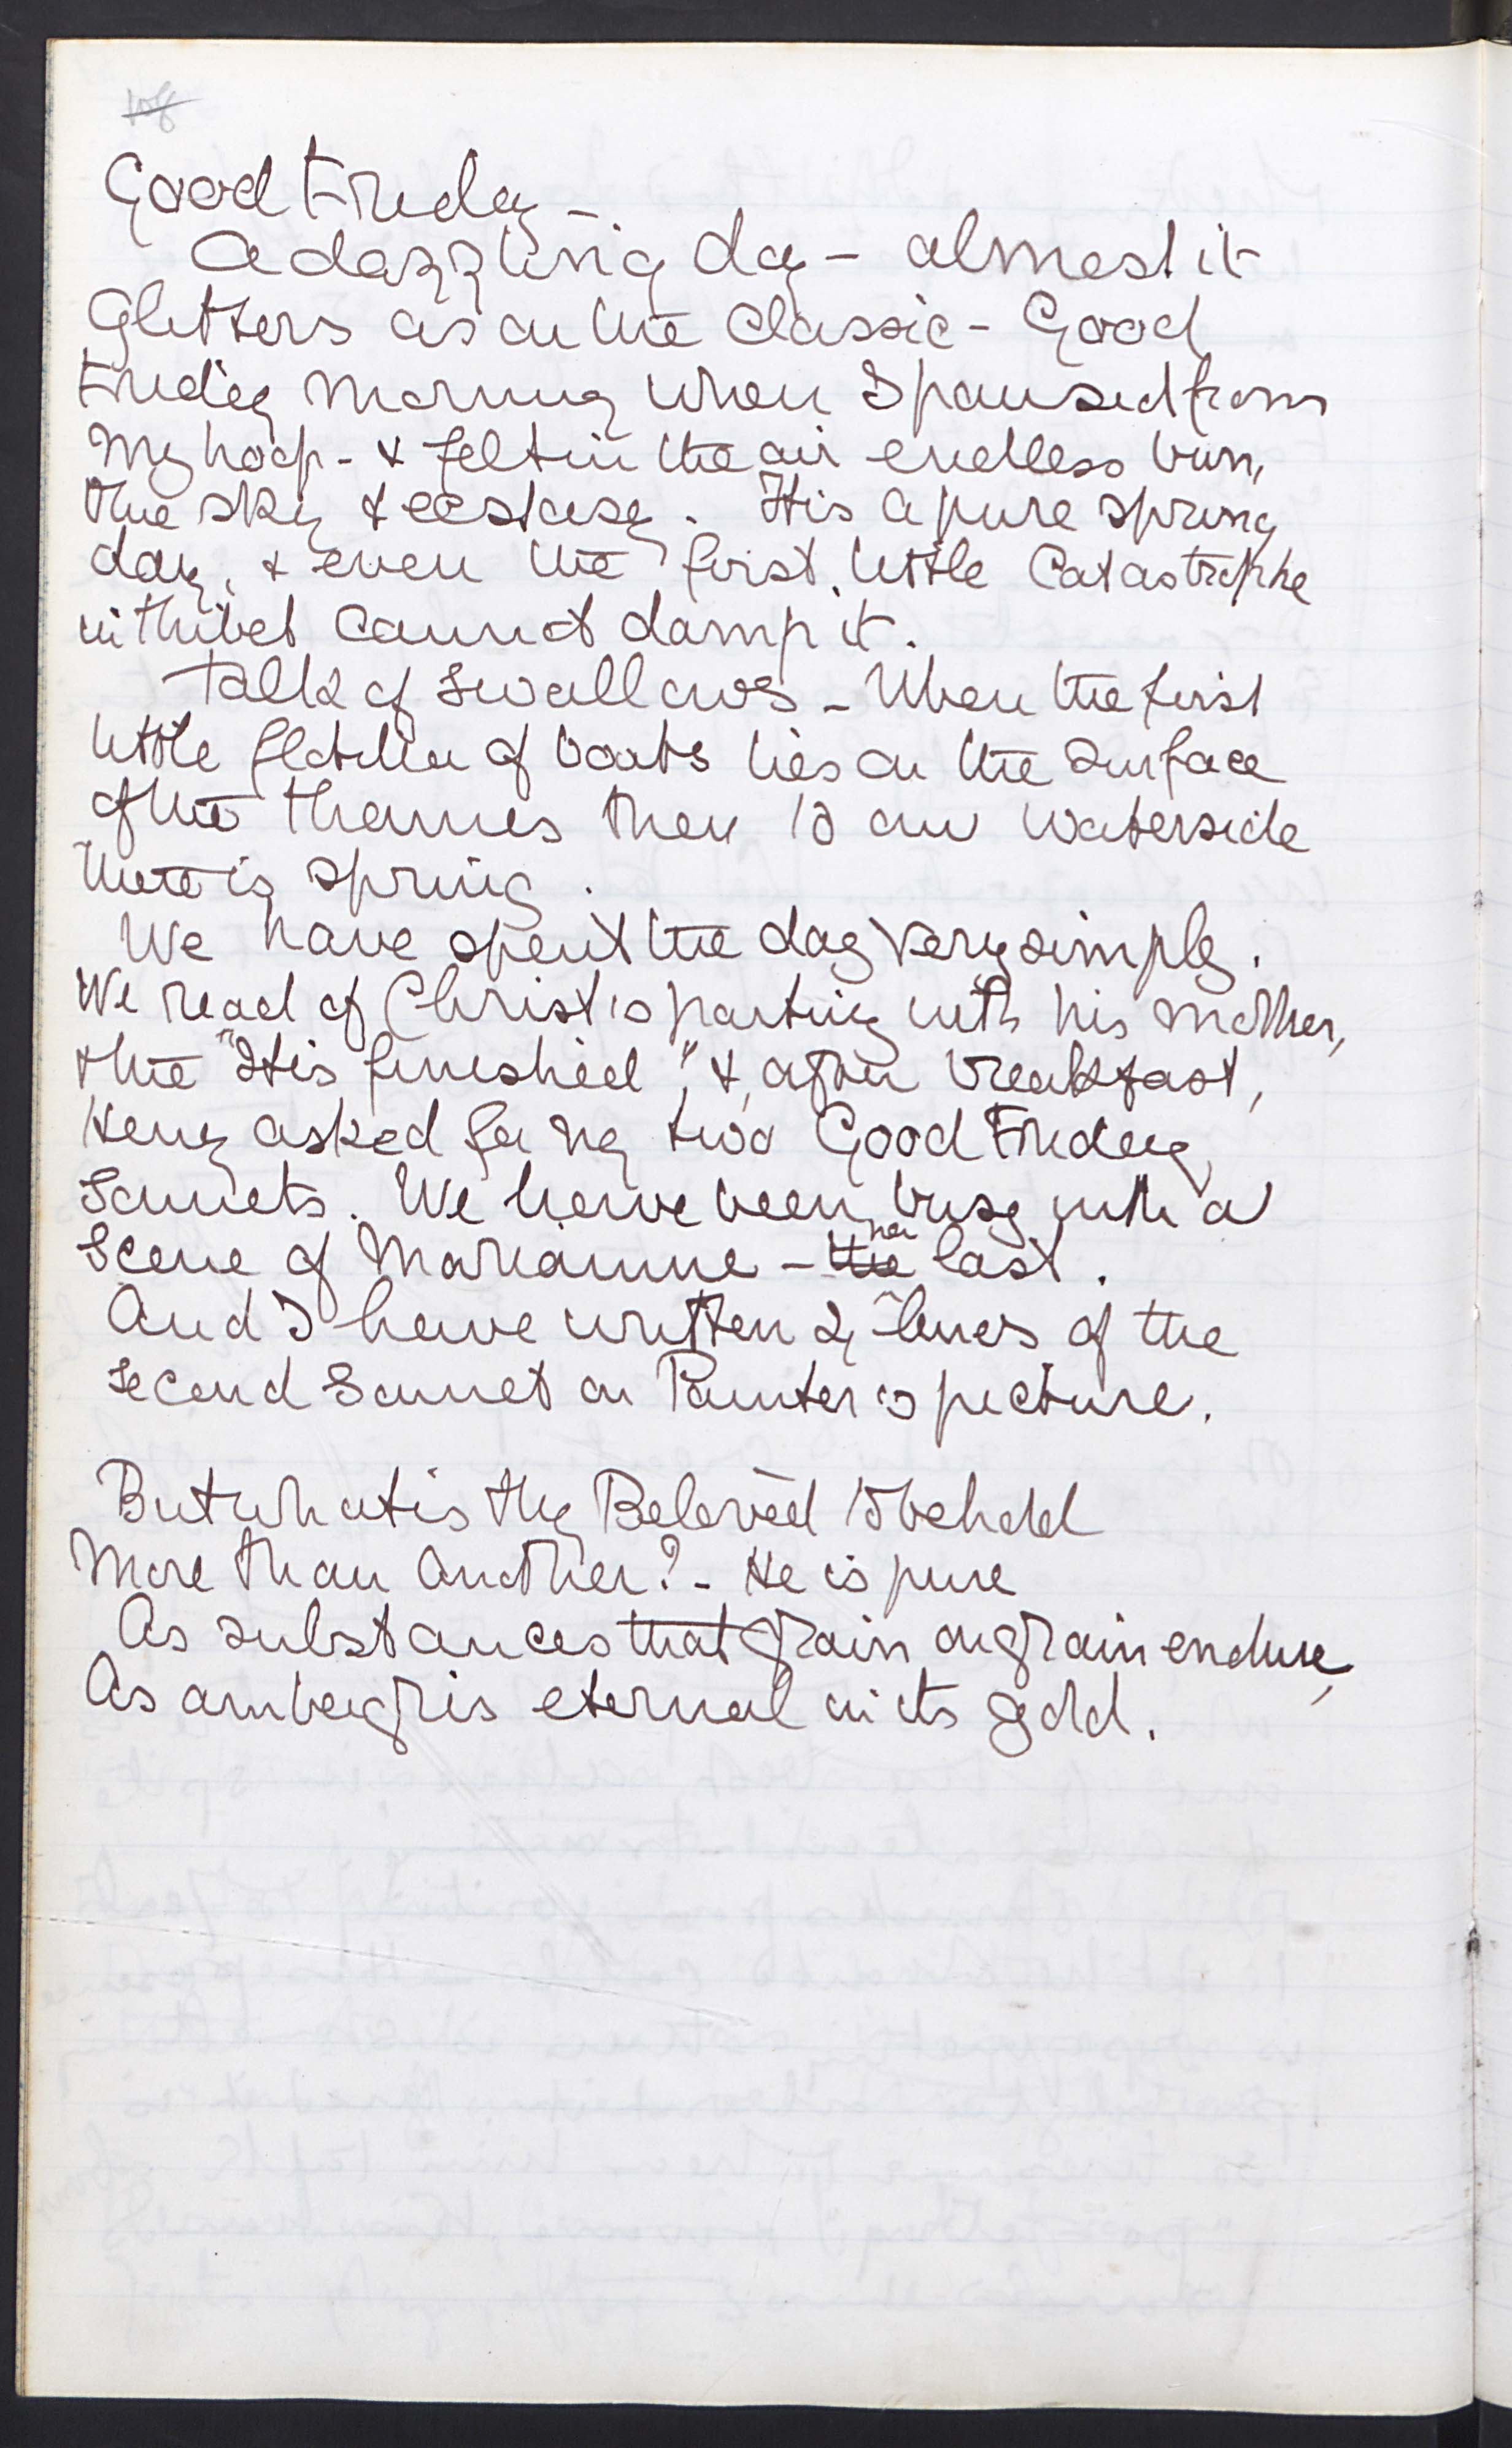 Good Friday –
A dazzling day – almost it
glitters as on the classic – Good
Friday morning when I paused from
my hoop – & felt in the air endless bun,
blue sky & ecstasy. It is a pure spring
day, & even the first little catastrophe
in Thibet cannot damp it.
Talk of swallows – When the first
little flotilla of boats lies on the surface
of the Thames then to our waterside
there is spring.
We have spent the day very simply.
We read of Christ's parting with his mother,
& the "It is finished", & after breakfast,
Heny asked for my two Good Friday
Sonnets. We have been busy with a
Scene of Mariamne – the her last.
And I have written 2 lines of the
second Sonnet on Painter's picture.
But what is thy Belovèd to behold
More than another? – He is pure
As substances that grain on grain endure,
As ambergris eternal in its gold.